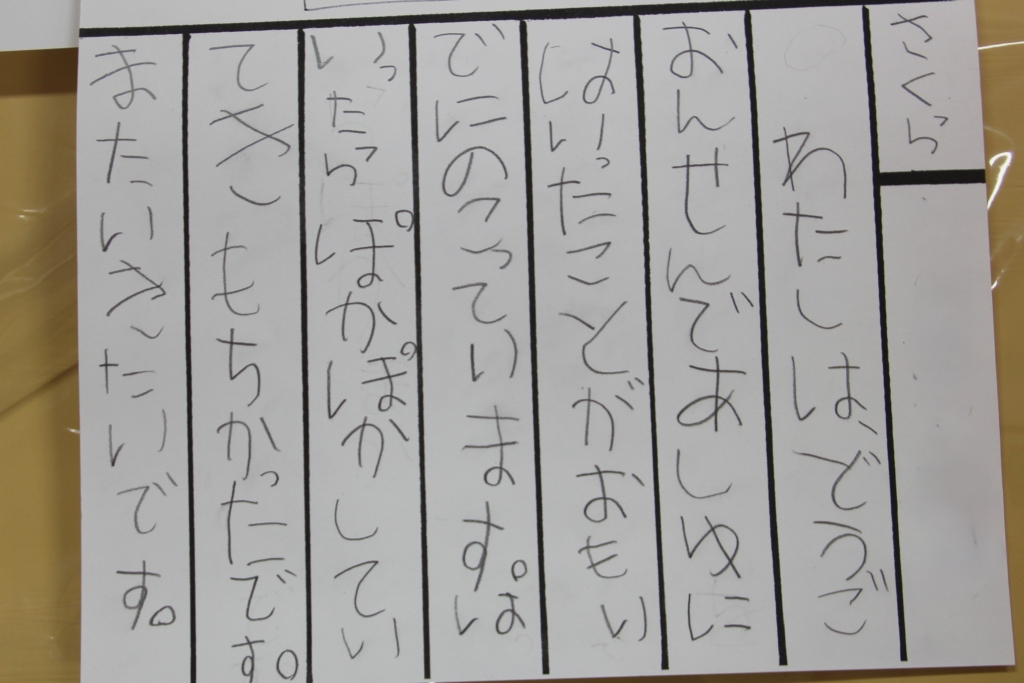 さくら
わたしは、どうご
おんせんであしゆに
はいったことがおもい
でにのこっています。は
いったらぽかぽかしてい
てきもちかったです。
またいきたいです。